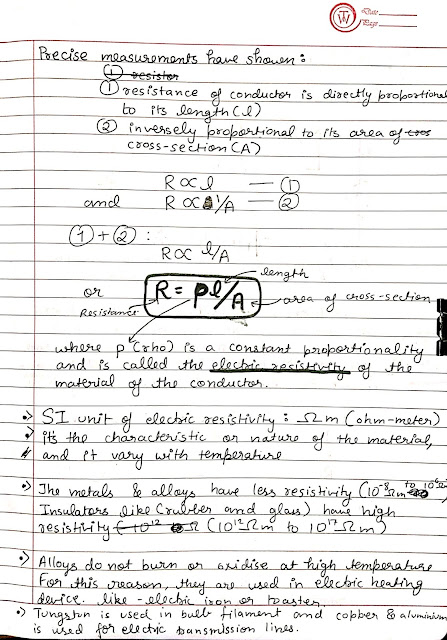 Date
Page
Precise measurements have shown :
① resistor
① resistance of conductor is directly proportional
to its length (l)
② inversely proportional to its area of cros
cross-section (A)
R ∝ l — ①
and R ∝ 1/A — ②
① + ② :
R ∝ l/A
length
or R = ρl/A area of cross-section
Resistance
where ρ (rho) is a constant proportionality
and is called the electric resistivity of the
material of the conductor.
•) SI unit of electric resistivity : Ωm (ohm-meter)
•) its the characteristic or nature of the material,
and it vary with temperature
•) The metals & alloys have less resistivity (10⁻⁸ Ωm to
Insulators like (rubber and glass) have high
resistivity (10¹² Ω (10¹² Ωm to 10¹⁷ Ωm)
•) Alloys do not burn or oxidise at high temperature
For this reason, they are used in electric heating
device. like - electric iron or toaster.
•) Tungsten is used in bulb filament and copper & aluminium
is used for electric transmission lines.